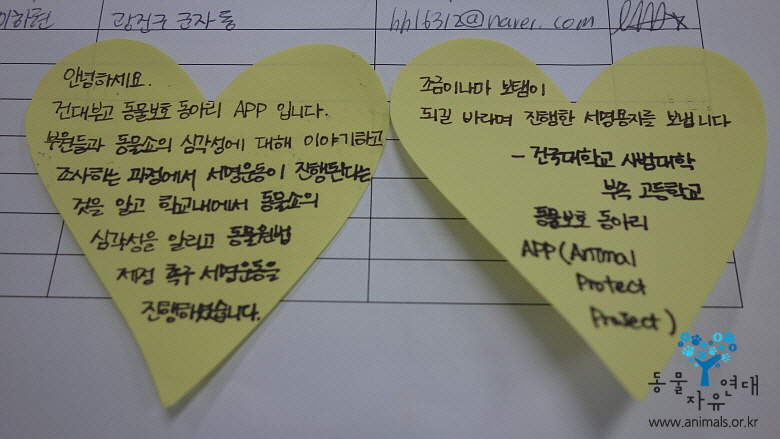 이하원 광진구 군자동 bb16312@naver.com
안녕하세요.
건대부고 동물보호 동아리 APP 입니다.
부원들과 동물쇼의 심각성에 대해 이야기하고
조사하는 과정에서 서명운동이 진행된다는
것을 알고 학교내에서 동물쇼의
심각성을 알리고 동물원법
제정 촉구 서명운동을
진행하였습니다.
조금이나마 보탬이
되길 바라며 진행한 서명용지를 보냅니다
- 건국대학교 사범대학
부속 고등학교
동물보호 동아리
APP (Animal
Protect
Project)
동물자유연대
www.animals.or.kr